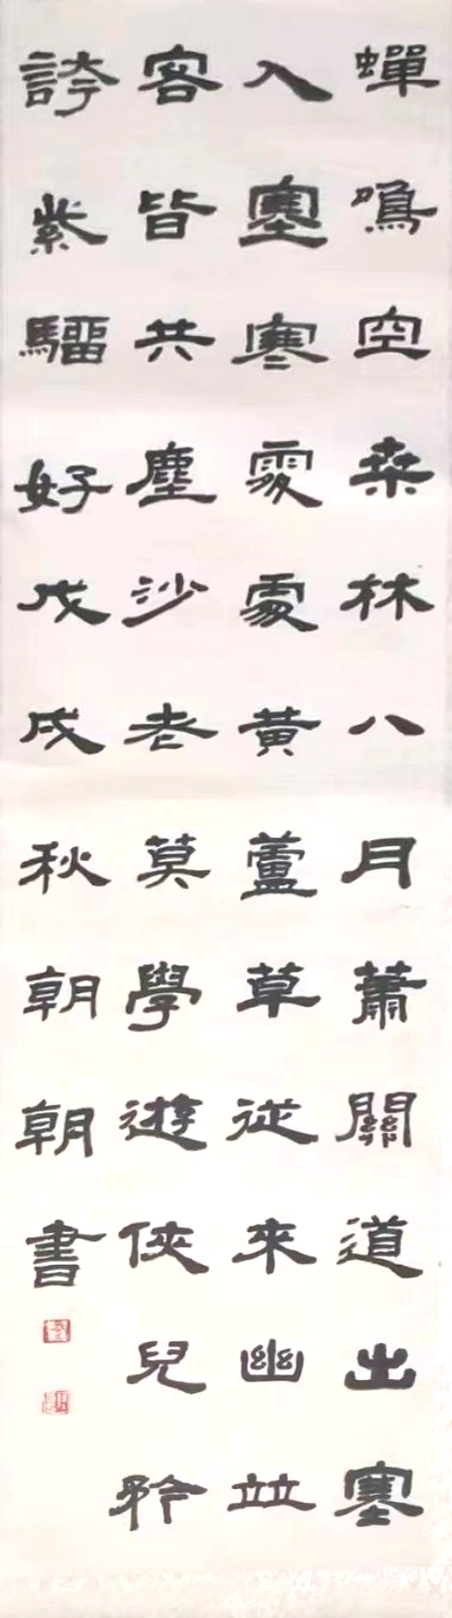 蟬鳴空桒林八月蕭關道出塞
入塞寒處處黃蘆草從來幽竝
客皆共塵沙老莫學遊俠兒矜
誇紫騮好戊戌秋朝朝書